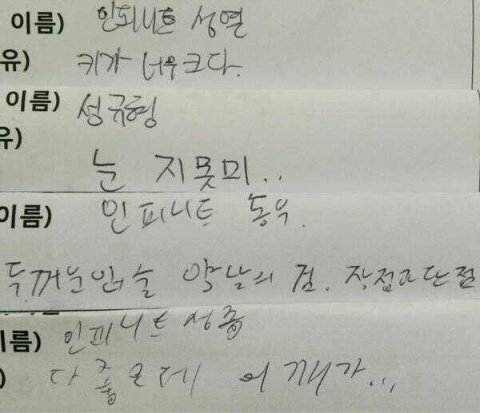 이름) 인피니트 성열
유) 키가 너무 크다.
이름) 성규형
유) 눈 지못미..
이름) 인피니트 동우.
두꺼운 입술 악남의 점. 장점과 단점
이름) 인피니트 성종
) 다 좋은데 어깨가...